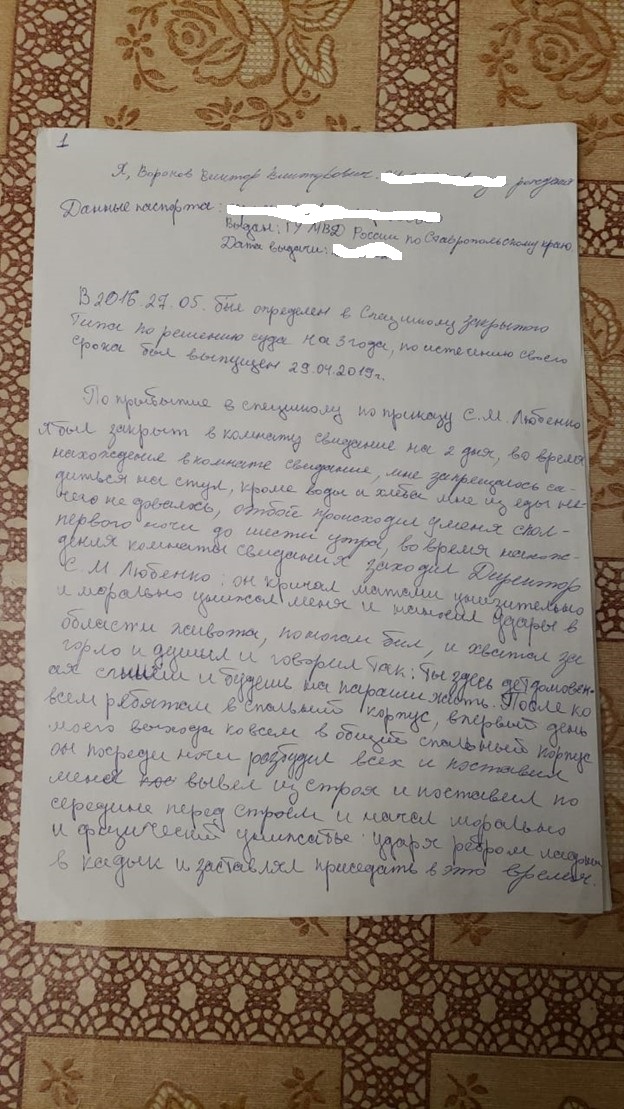 1
Я, Воронов Виктор Викторович. рождения
Данные паспорта:
Выдан: ГУ МВД России по Ставропольскому краю
Дата выдачи:
В 2016. 27. 05. был определен в Спецшколу закрытого
типа по решению суда на 3 года, по истечению своего
срока был выпущен 29.04.2019г.
По прибытие в спецшколу по приказу С.М. Любенко
я был закрыт в комнату свидание на 2 дня, во время
нахождение в комнате свидание, мне запрещалось са-
диться на стул, кроме воды и хлеба мне из еды не-
чего не довалось, отбой происходил у меня с пол-
первого ночи до шести утра, во время нахож-
дения комнаты свидания заходил Директор
С.М. Любенко: он кричал матами унизительно
и морально унижал меня и наносил удары в
области живота, по ногам бил, и хватал за
горло и душил и говорил так: ты здесь детдомовен-
ах и будешь на параши жить. После ко
всем ребятам в спальный корпус, в первый день
моего выхода ко всем в общий спальный корпус
он посреди ночи разбудил всех и поставил
меня вывел из строя и поставил по
середине перед строем и начал морально
и физический ударя ребром ладони
в кадык и заставлял приседать в это время.